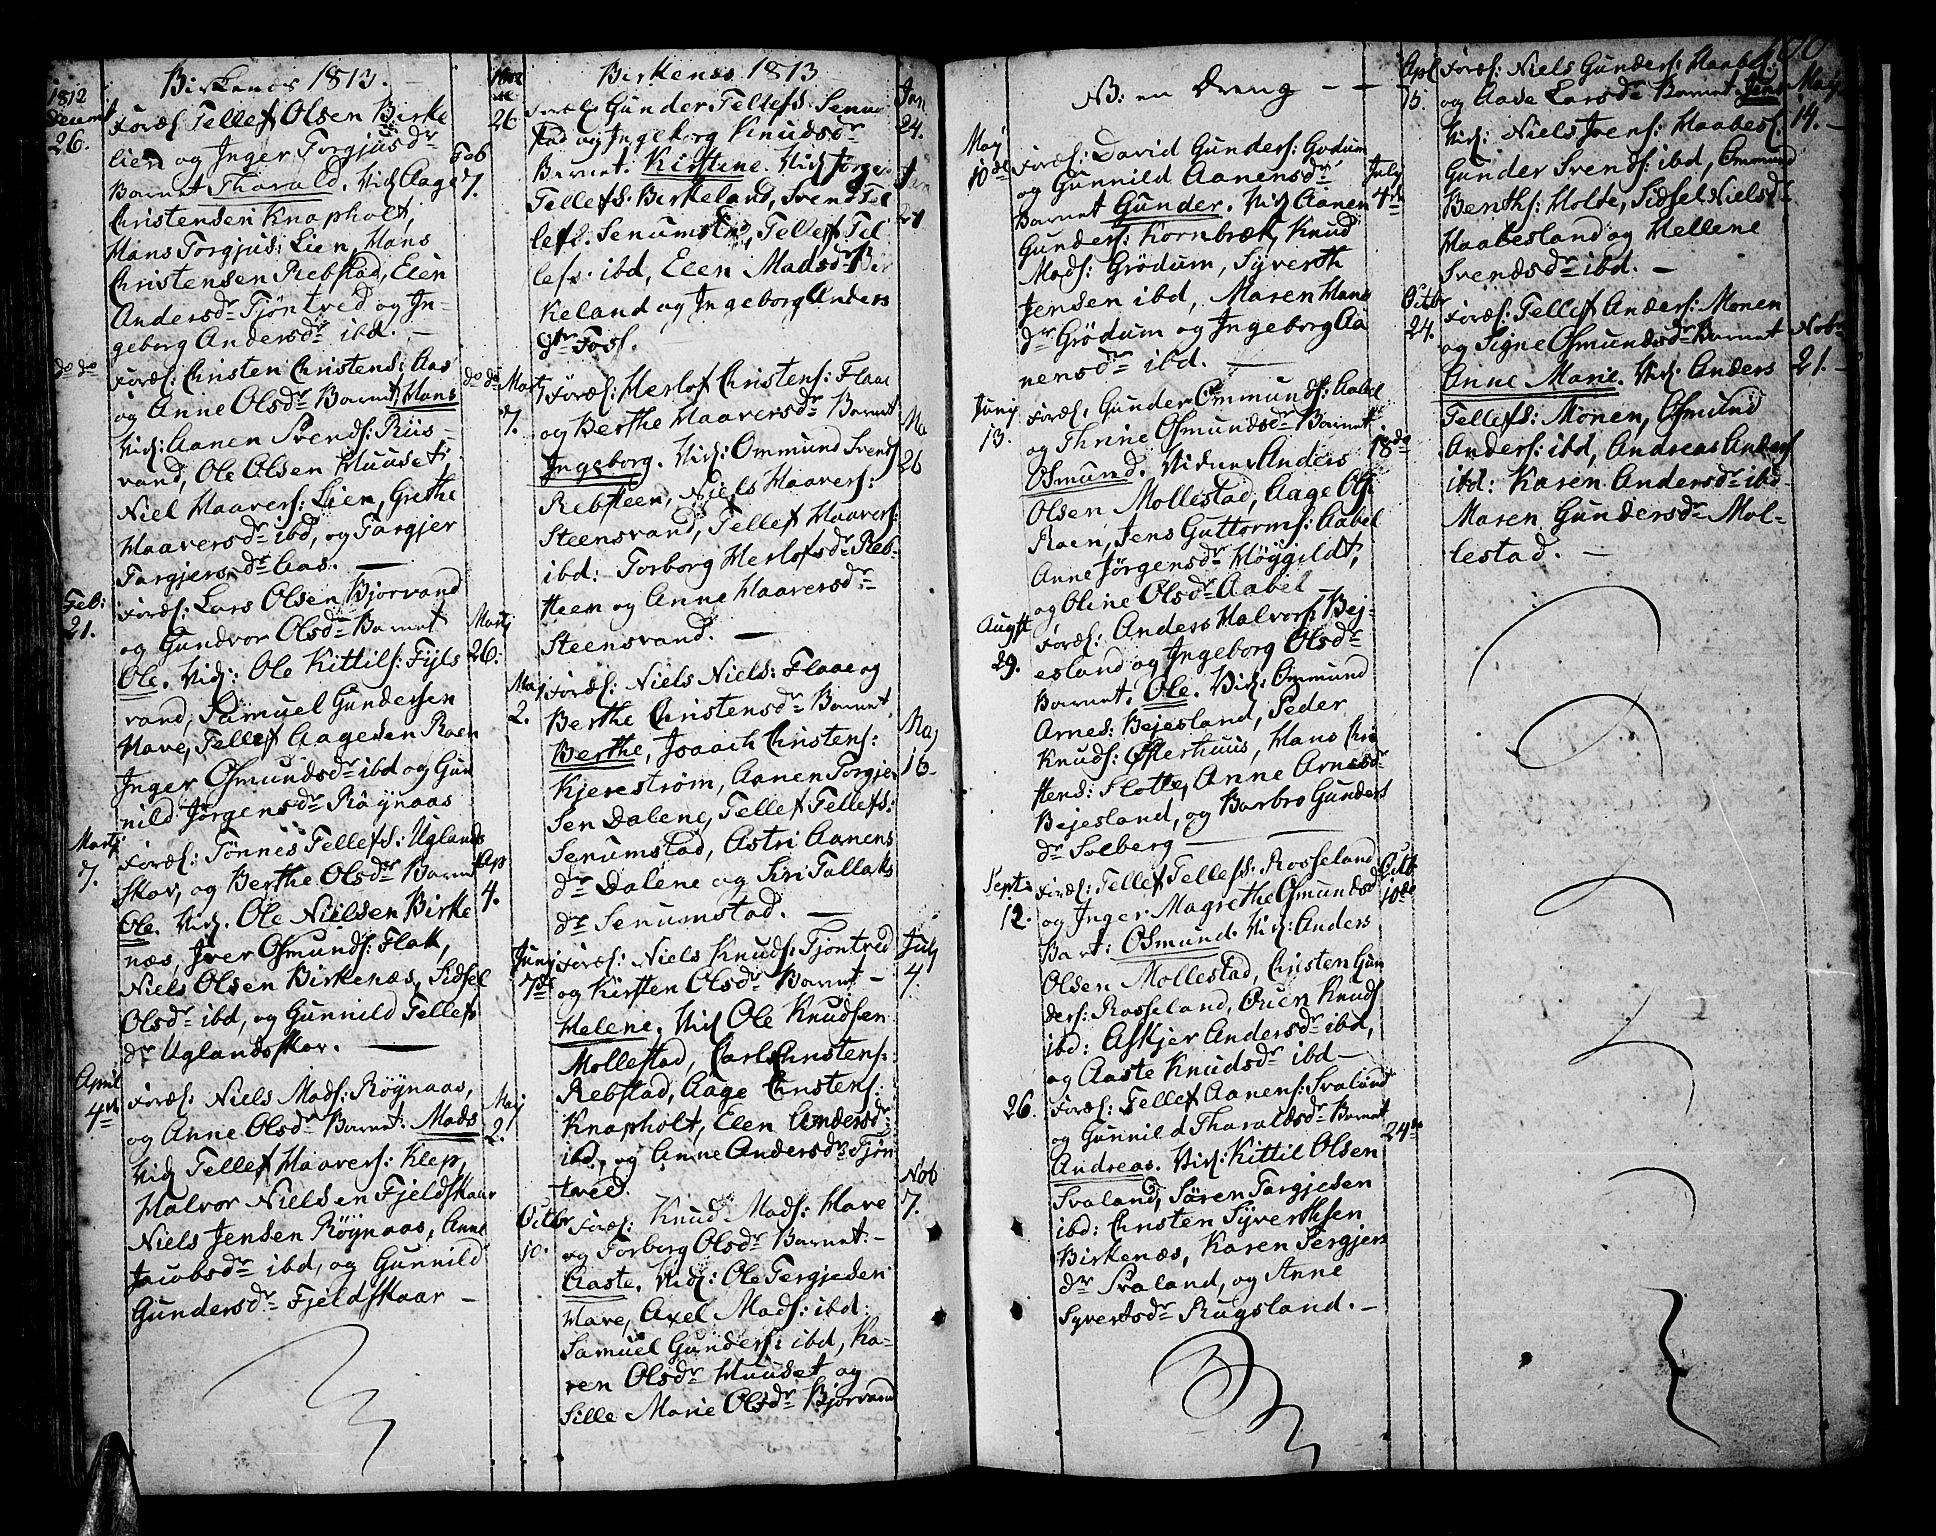 Birkenes 1813.
1812
Decembr
26.
Foræl: Tellef Olsen Birke
lien og Inger Torgjusdr
Barnet Tharald. Vid: Aage
Christensen Knapholt,
Hans Torgjus: Lien, Hans
Christensen Rebstad, Elen
Andersdr Tjöntved og In-
geborg Andersdr ibd. —
Feb
7.
do do
Foræl: Christen Christens: Aas
og Anne Olsdr Barnet: Hans
Vid: Aanen Svends: Riis-
vand, Ole Olsen Huuset:
Niel Haavers: Lien, Grethe
Haaversdr ibd, og Targjer
Targjersdr Aas. —
do do
Feb:
21.
Foræl: Lars Olsen Bjorvand
og Gundvor Olsdr Barnet
Ole. Vid: Ole Kittils: Fijls
vand, Samuel Gundersen
Have, Tellef Aagesen Roen
Inger Osmundsdr ibd og Gun
nild Jörgensdr Röynaas
Martj
26:
Martj
7.
Foræl: Tönnes Tellefs: Uglands
skor, og Berthe Olsdr Barnet
Ole. Vid. Ole Nielsen Birke
næs, Iver Osmunds: Flak,
Niels Olsen Birkenæs, Sidsel
Olsdr ibd, og Gunnild Tellefs
dr Uglandsskor. —
Ap
4.
April
4de
Foræl: Niels Mads: Röynaas,
og Anne Olsdr Barnet: Mads
Vid Tellef Haavers: Klep,
Halvor Nielsen Fjeldskaar
Niels Jensen Röynaas, Anne
Jacobsdr ibd, og Gunnild
Gundersdr Fjeldskaar —
Maj
2.
Birkenes 1813
26
Foræl: Gunder Tellefs: Senum
stad og Ingeborg Knudsdr
Barnet. Kirstene. Vid: Jörgen
Tellefs: Birkeland, Svend Tel
lefs. Senumstad, Tellef Tel
lefs: ibd, Elen Madsdr Bir
keland og Ingeborg Anders
dr Foss.
Jan
24.
Mart
7.
Foræl: Herlof Christens: Flaae
og Berthe Haaversdr Barnet
Ingeborg. Vid: Ommund Svends
Rebsteen, Niels Haavers:
Steensvand, Tellef Haavers:
ibd: Torborg Herlofsdr Reb-
steen og Anne Haaversdr
Steensvand. —
Ma
26
Maj
2.
Foræl: Niels Niels: Flaae og
Berthe Christensdr Barnet
Berthe, Joaach Christens:
Kjerestrøm, Aanen Torgjer
Sen Dalene, Tellef Tellefs:
Senumstad, Astri Aanens
dr Dalene og Siri Tallaks
dr Senumstad. —
Maj
16-
Junj
7de
Foræl: Niels Knuds: Tjöntved
og Kirsten Olsdr Barnet —
Helene. Vid Ole Knudsen
Mollestad, Carl Christens:
Rebstad, Aage Christens:
Knapholt, Elen Andersdr:
ibd, og Anne Andersdr Tjön
tved.
July
4
Octbr
10.
Foræl: Knud Mads: Have
og Torborg Olsdr Barnet: —
Aaste. Vid: Ole Tergjesen
Have, Axel Mads: ibd:
Samuel Gunders: ibd, Ka-
ren Olsdr Huuset og
Sille Marie Olsdr Bjorvand
Nob
7.
NB: en Dreng — — —
Maj
10de
Foræl: David Gunders: Grödum
og Gunnild Aanensdr
Barnet Gunder. Vid: Aanen
Gunders: Kornbræk, Knud
Mads: Grödum, Syverth
Jensen ibd, Maren Hans
dr Grödum og Ingeborg Aa
nensdr ibd. —
July
4de
Junj
13.
Foræl. Gunder Ommunds: Aabel
og Thrine Osmundsdr Barnet
Osmund. Vidner Anders
Olsen Mollestad, Aage Ols
Roen, Jens Guttorms: Aabel
Anne Jörgensdr Höygildt,
og Oline Olsdr Aabel
18de
Augst
29.
Foræl: Anders Halvors: Bej-
esland og Ingeborg Olsdr
Barnet. Ole. Vid: Ommund
Arnes: Bejesland, Peder
Knuds: Østerhuus, Hans Chri
stens: Slotte, Anne Arnesdr
Bejesland, og Barbro Gunders
dr Solberg —
Septr
12.
Foræl: Tellef Tellefs: Rosseland
og Inger Magrethe Osmundsd
Bart: Osmund. Vid: Anders
Olsen Mollestad, Christen Gun
ders: Rosseland, Ouen Knuds
ibd: Askjer Andersdr ibd,
og Aaste Knudsdr ibd —
Octb
10de
26.
Foræl: Tellef Aanens: Svaland
og Gunnild Tharaldsdr Barnet
Andreas. Vid: Kittil Olsen
Svaland, Sören Targjesen
ibd: Christen Syverthsen
Birkenæs, Karen Tergjers
dr Svaland, og Anne
Syvertsdr Rugsland. —
24de
100
Apl
15.
Foræl: Niels Gunders: Haabes:
og Aase Larsdr Barnet. Jens
Vid: Niels Jvens: Haabesl.
Gunder Svends: ibd, Ommund
Benths: Holte, Sidsel Nielsdr
Haabesland og Hellene
Svendsdr ibd. —
Maj
14. —
Octbr
24.
Foræl: Tellef Anders: Monen
og Signe Osmundsdr Barnet
Anne Marie. Vid: Anders
Tellefs: Monen, Osmund
Anders: ibd, Andreas Anders
ibd: Karen Andersdr ibd
Maren Gundersdr Mol-
lestad. —
Nobr
21. —